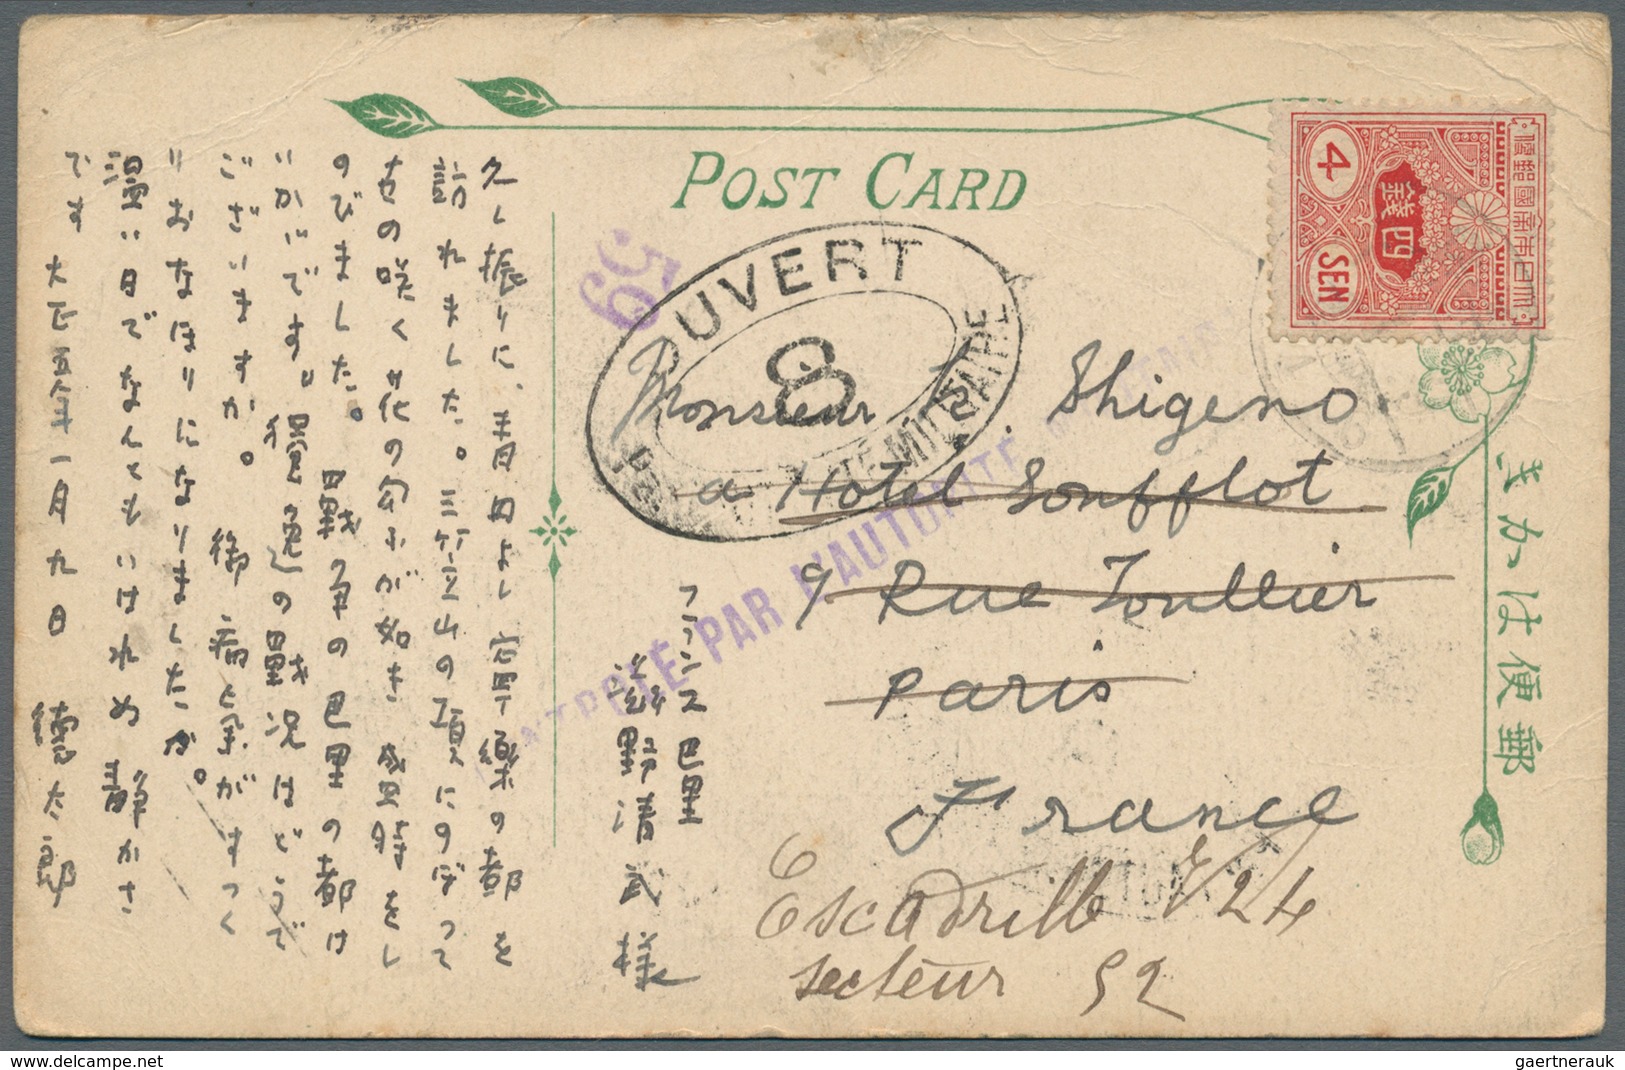 POST CARD
大日本帝國郵便
四銭
4
SEN
きかは便郵
OUVERT
8
MILITAIRE
59
PAR L'AUTORITÉ
Monsieur K. Shigeno
a Hotel Soufflot
9 Rue Toullier
Paris
France
Escadrille V 24
secteur 92
フランス巴里
滋野清武様
久し振りに、青丹よし寧樂の都を
訪れました。三笠山の頂にのぼって
古の咲く花の匂ふが如き盛時をし
のびました。 異戦争の巴里の都は
いかゞです。 の戦況はどうで
ございますか。 御病気がすつく
りおなほりになりましたか。
温い日でなんともいはれぬ静かさ
です 大正五年一月九日 徳太郎
gaertnerauk
www.delcampe.net